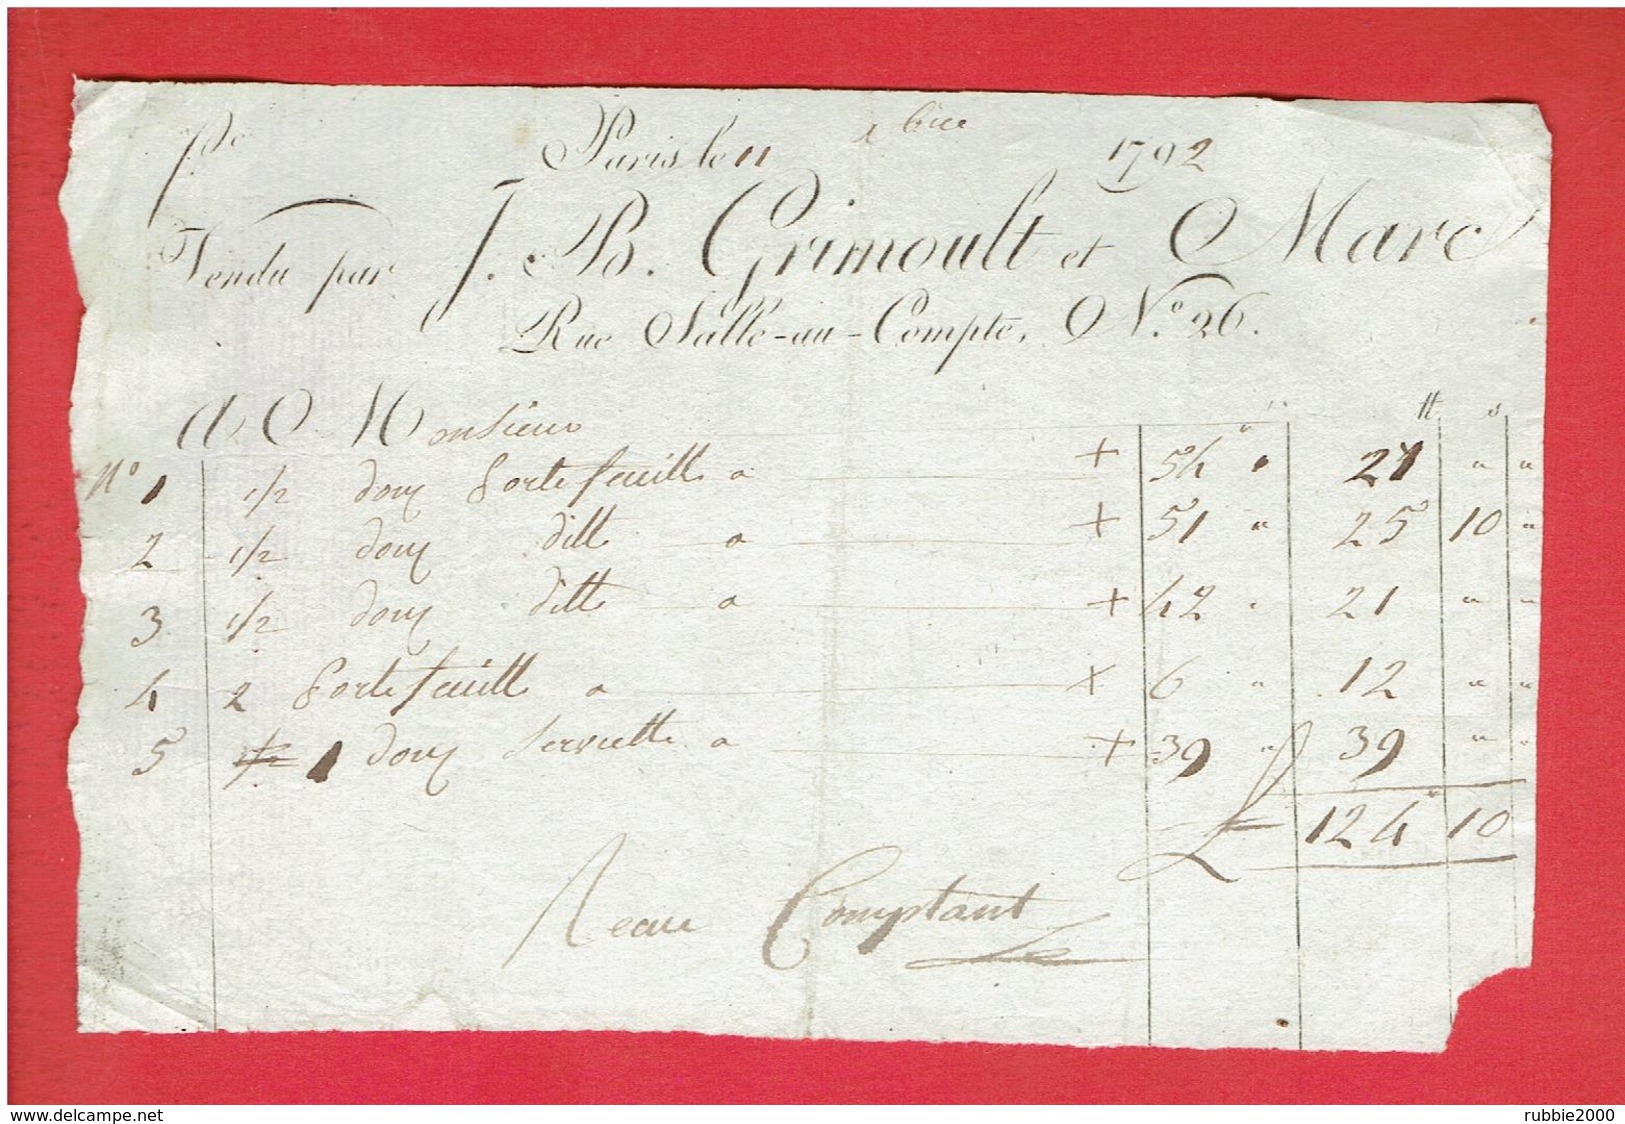 P.de
Paris le 11 bre 1792
Vendu par J. B. Grimoult et Marc
Rue Salle-au-Compte, N.º 26.
A Monsieur ₶ s
Nº 1 1/2 douz portefeuille a + 54 " 27 " "
2 1/2 douz ditt a + 51 " 25 10 "
3 1/2 douz ditt a + 42 " 21 " "
4 2 portefeuille a + 6 " 12 " "
5 1 douz serviette a + 39 " 39 " "
124 10
Comptant
www.delcampe.net
rubbie2000